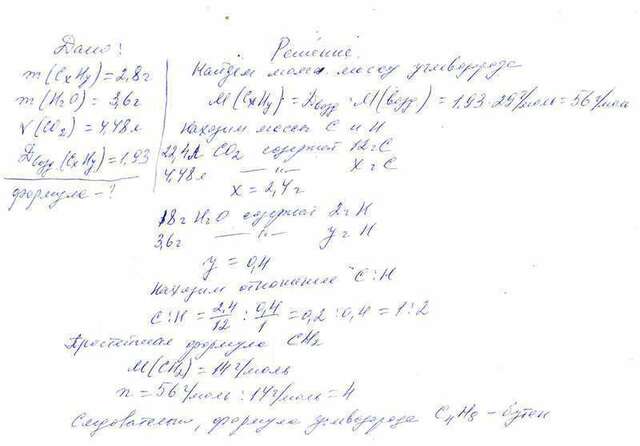 Дано:
m(CxHy) = 2,8г
m(H2O) = 3,6г
V(CO2) = 4,48л
Dвозд.(CxHy) = 1.93
формула - ?
Решение.
Найдем мол. массу углеводорода
M(CxHy) = Dвозд · M(возд) = 1.93 · 29г/моль = 56г/моль
Находим массы C и H
22,4л CO2 содержит 12г C
4,48л —"— x г C
x = 2,4г
18г H2O содержит 2г H
3,6г —"— y г H
y = 0,4
Находим отношение C:H
C:H = 2,4/12 : 0,4/1 = 0,2 : 0,4 = 1:2
Простейшая формула CH2
M(CH2) = 14г/моль
n = 56г/моль : 14г/моль = 4
Следовательно, формула углеводорода C4H8 - бутен